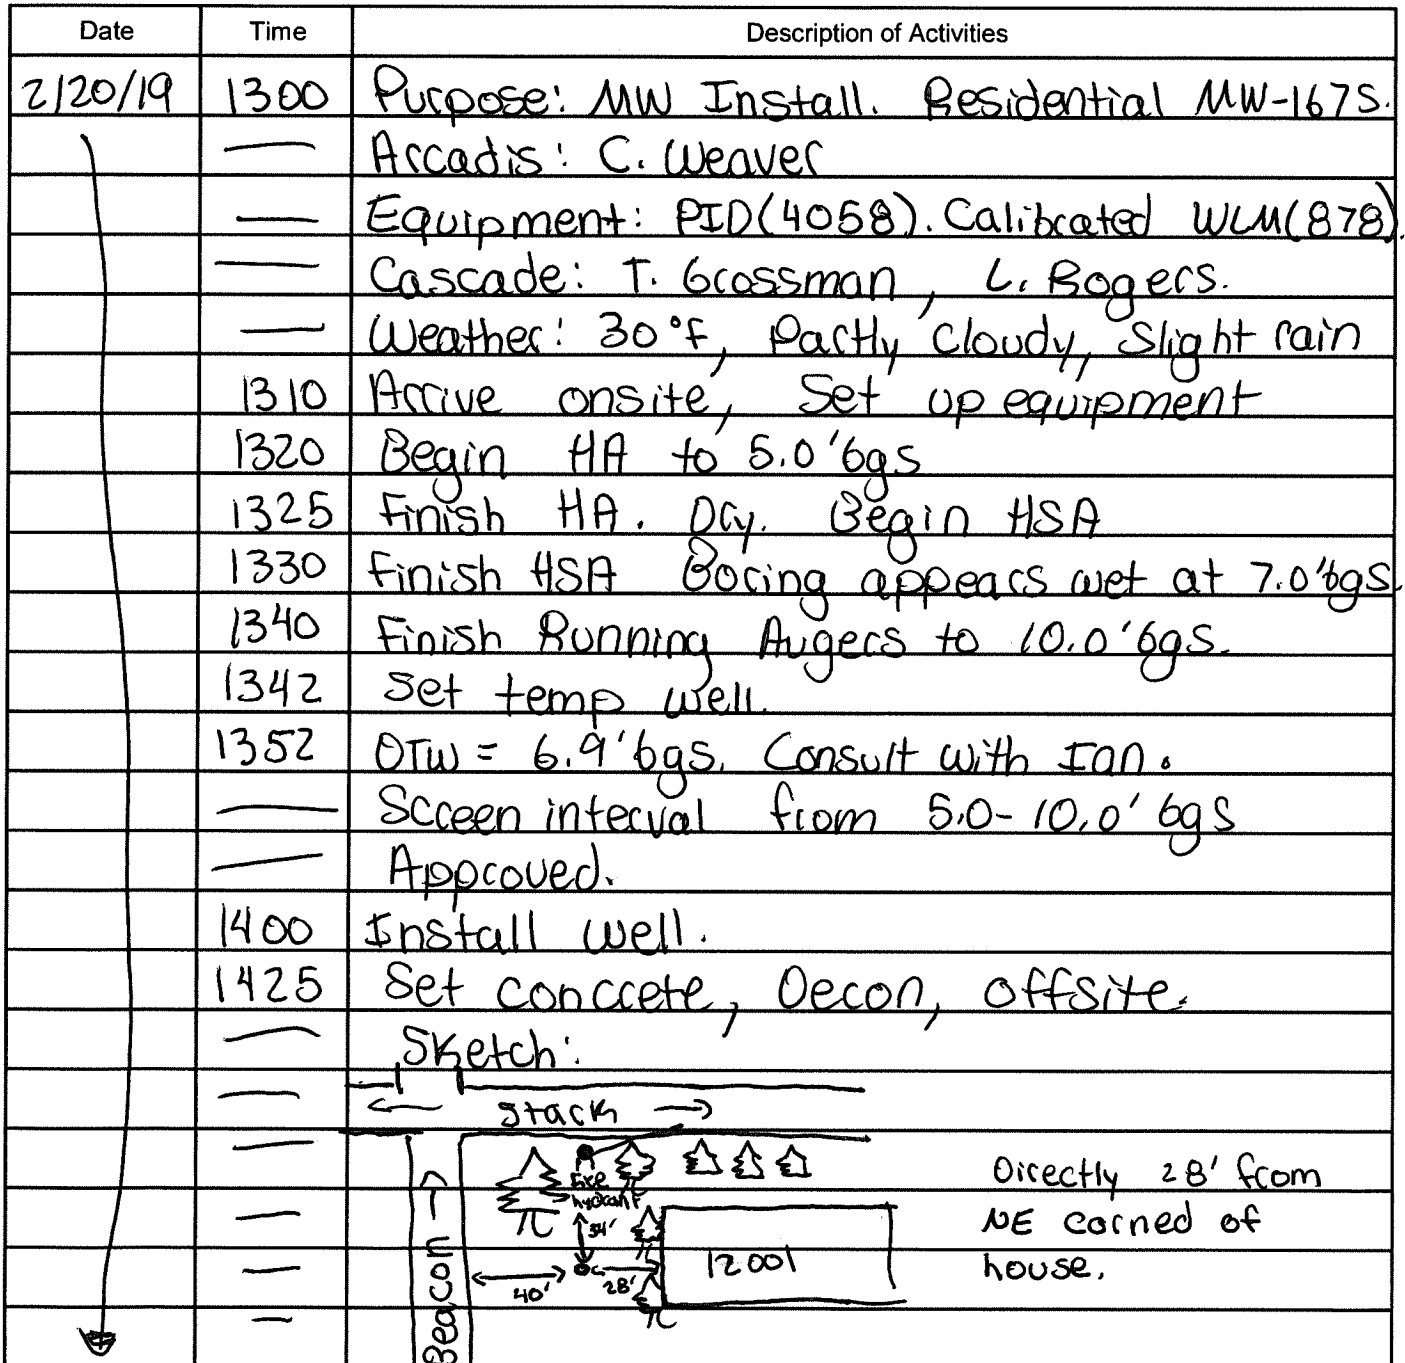 Date Time Description of Activities
2/20/19 1300 Purpose: MW Install. Residential MW-167S.
Arcadis: C. Weaver
Equipment: PID(4058). Calibrated WLM(878).
Cascade: T. Grossman, L. Rogers.
Weather: 30°F, Partly Cloudy, Slight rain
1310 Arrive onsite, Set up equipment
1320 Begin HA to 5.0'bgs
1325 Finish HA. Dry. Begin HSA
1330 Finish HSA Boring appears wet at 7.0'bgs.
1340 Finish Running Augers to 10.0'bgs.
1342 Set temp well.
1352 DTW = 6.9'bgs. Consult with Ian.
Screen interval from 5.0-10.0' bgs
Approved.
1400 Install well.
1425 Set concrete, Decon, offsite.
Sketch:
Stark
Beacon
Fire
hydrant
34'
40'
28'
12001
Directly 28' from
NE corned of
house.